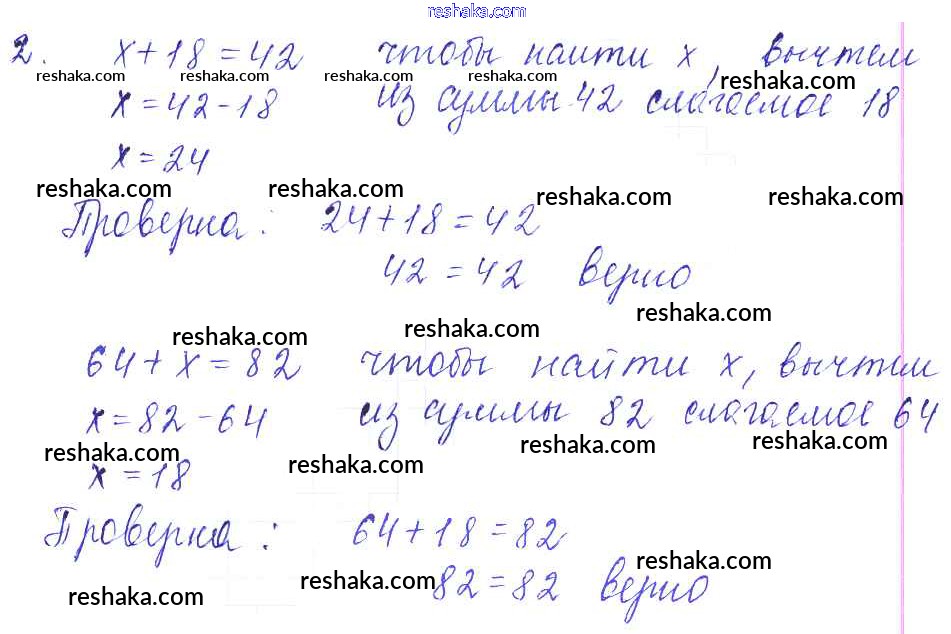 reshaka.com
2. x + 18 = 42 чтобы найти x, вычтем
reshaka.com reshaka.com reshaka.com reshaka.com reshaka.com
x = 42 - 18 из суммы 42 слагаемое 18
x = 24
reshaka.com reshaka.com reshaka.com reshaka.com
Проверка: 24 + 18 = 42
42 = 42 верно
reshaka.com reshaka.com reshaka.com
64 + x = 82 чтобы найти x, вычтем
x = 82 - 64 из суммы 82 слагаемое 64
reshaka.com reshaka.com reshaka.com reshaka.com
x = 18
Проверка: 64 + 18 = 82
reshaka.com reshaka.com reshaka.com
82 = 82 верно